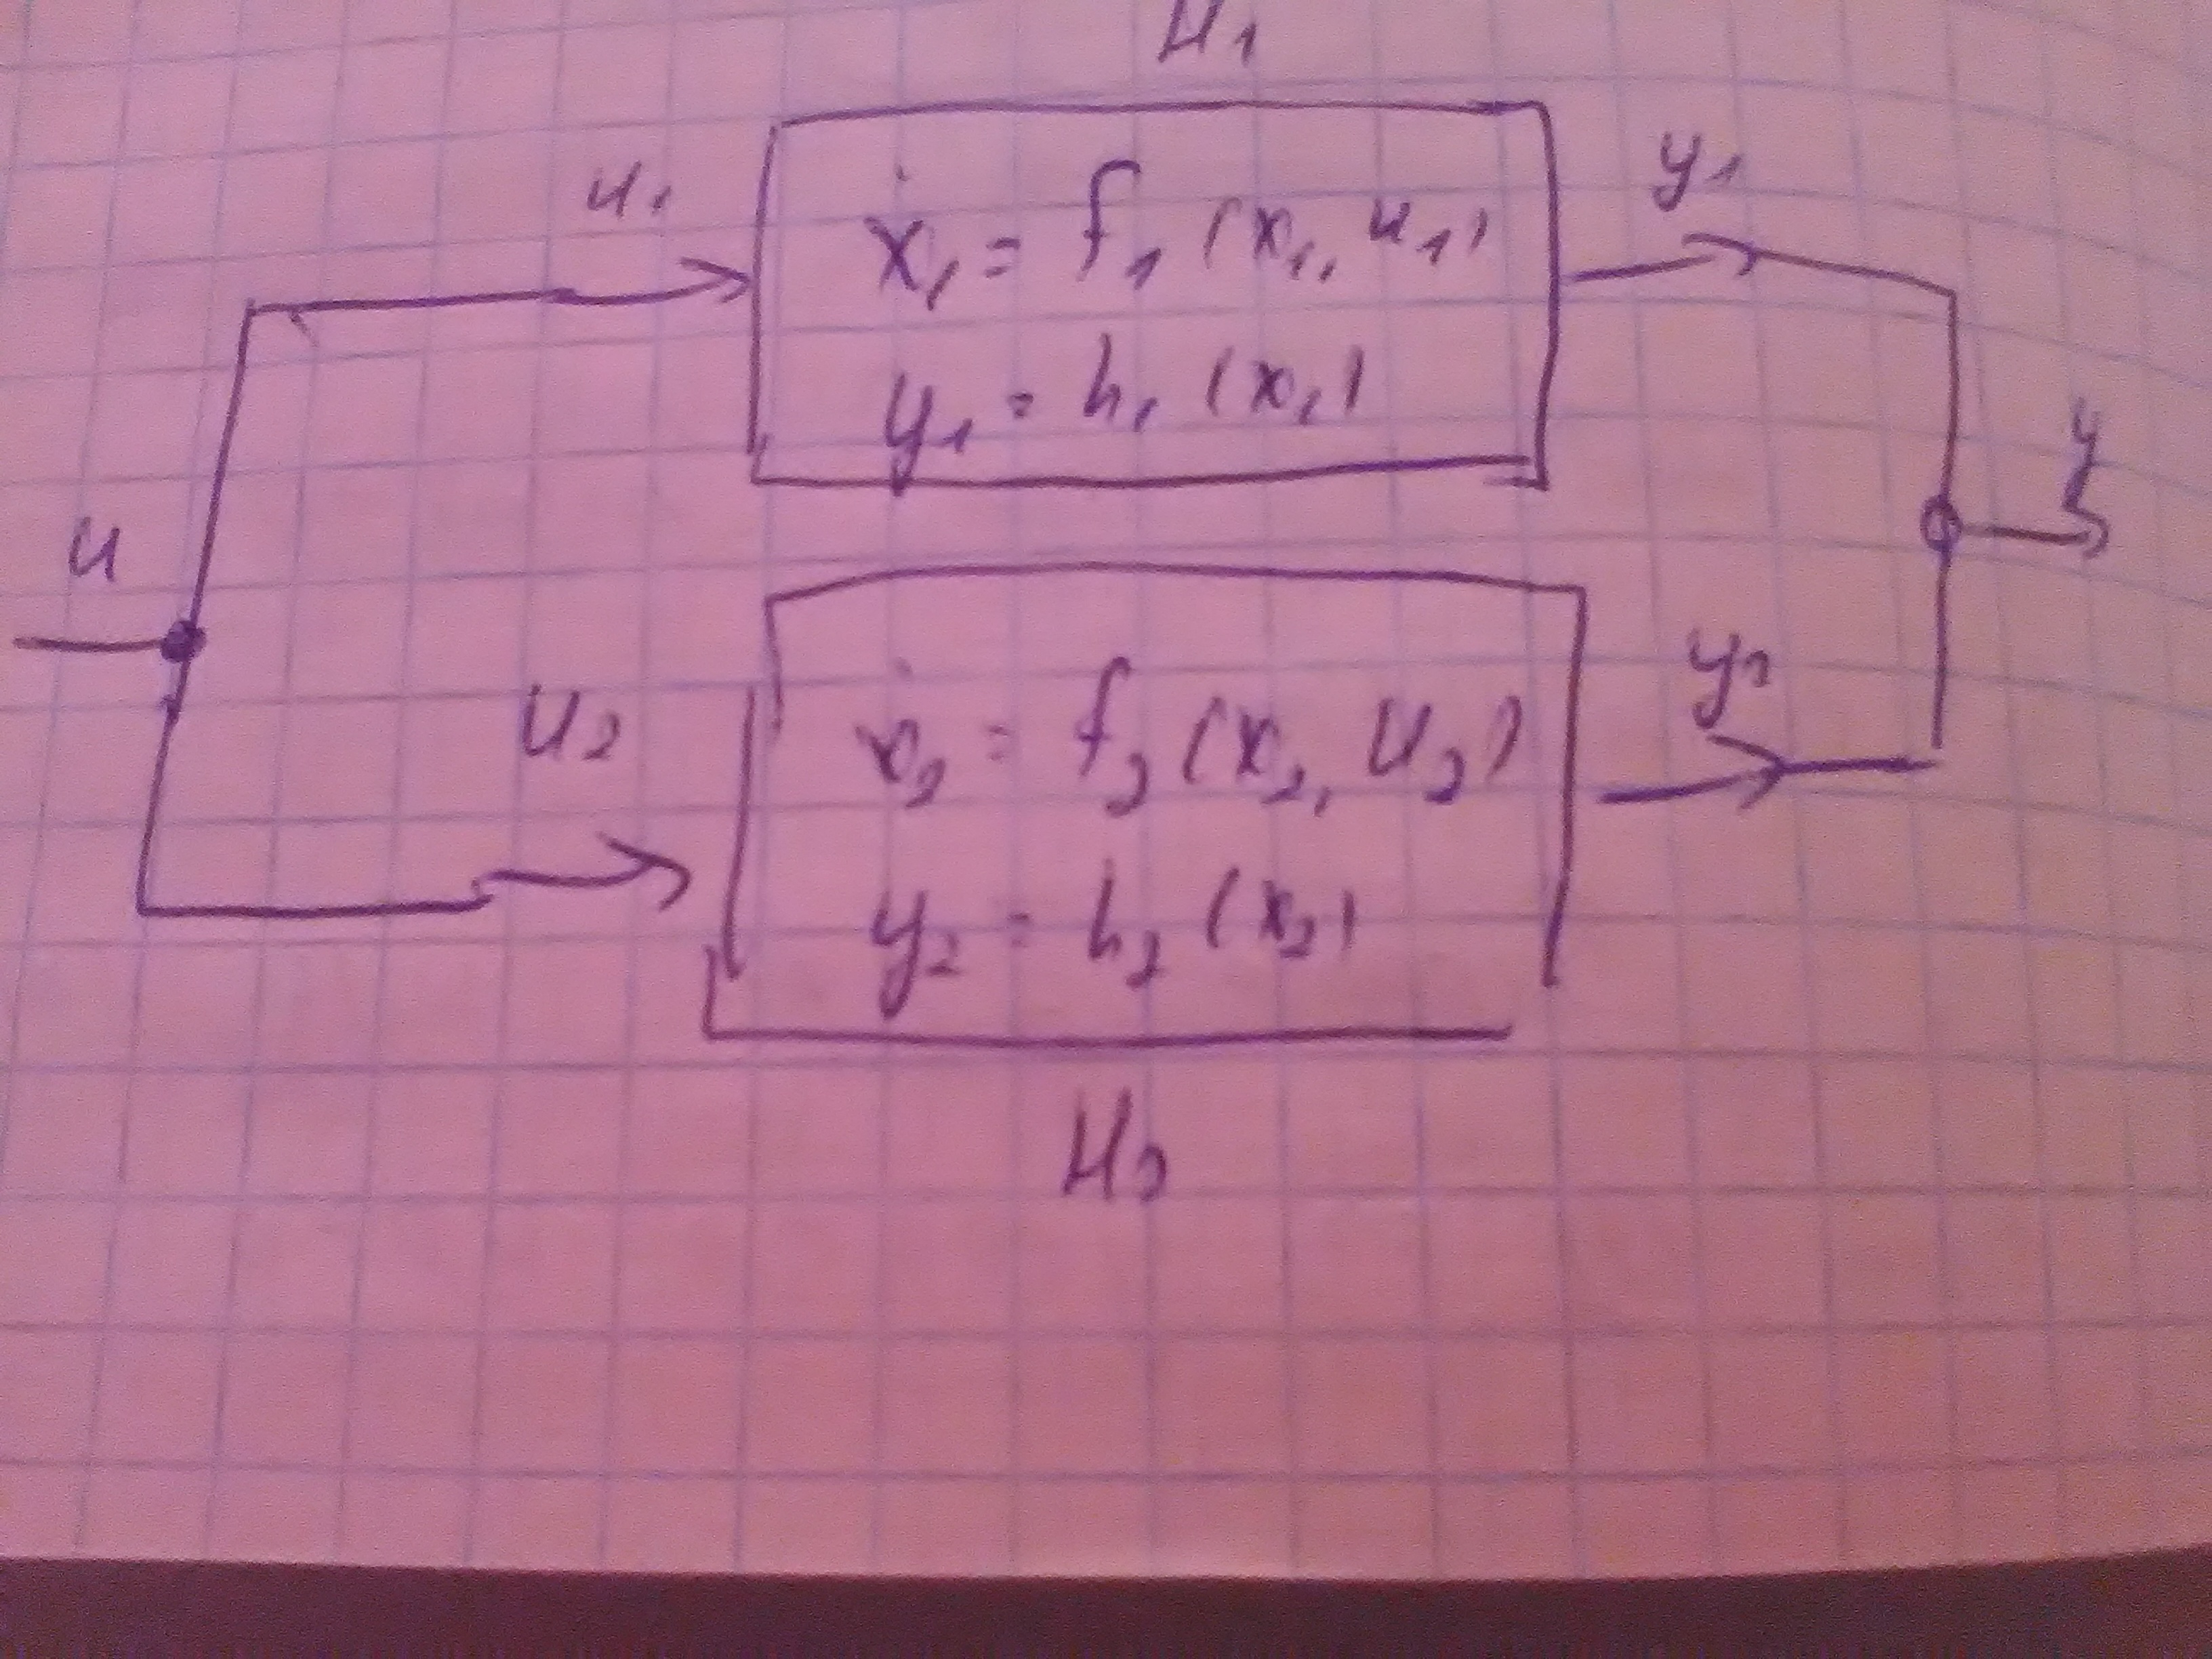 H₁
u₁
ẋ₁ = f₁ (x₁, u₁)
y₁
y₁ = h₁ (x₁)
y
u
u₂
ẋ₂ = f₂ (x₂, u₂)
y₂
y₂ = h₂ (x₂)
H₂